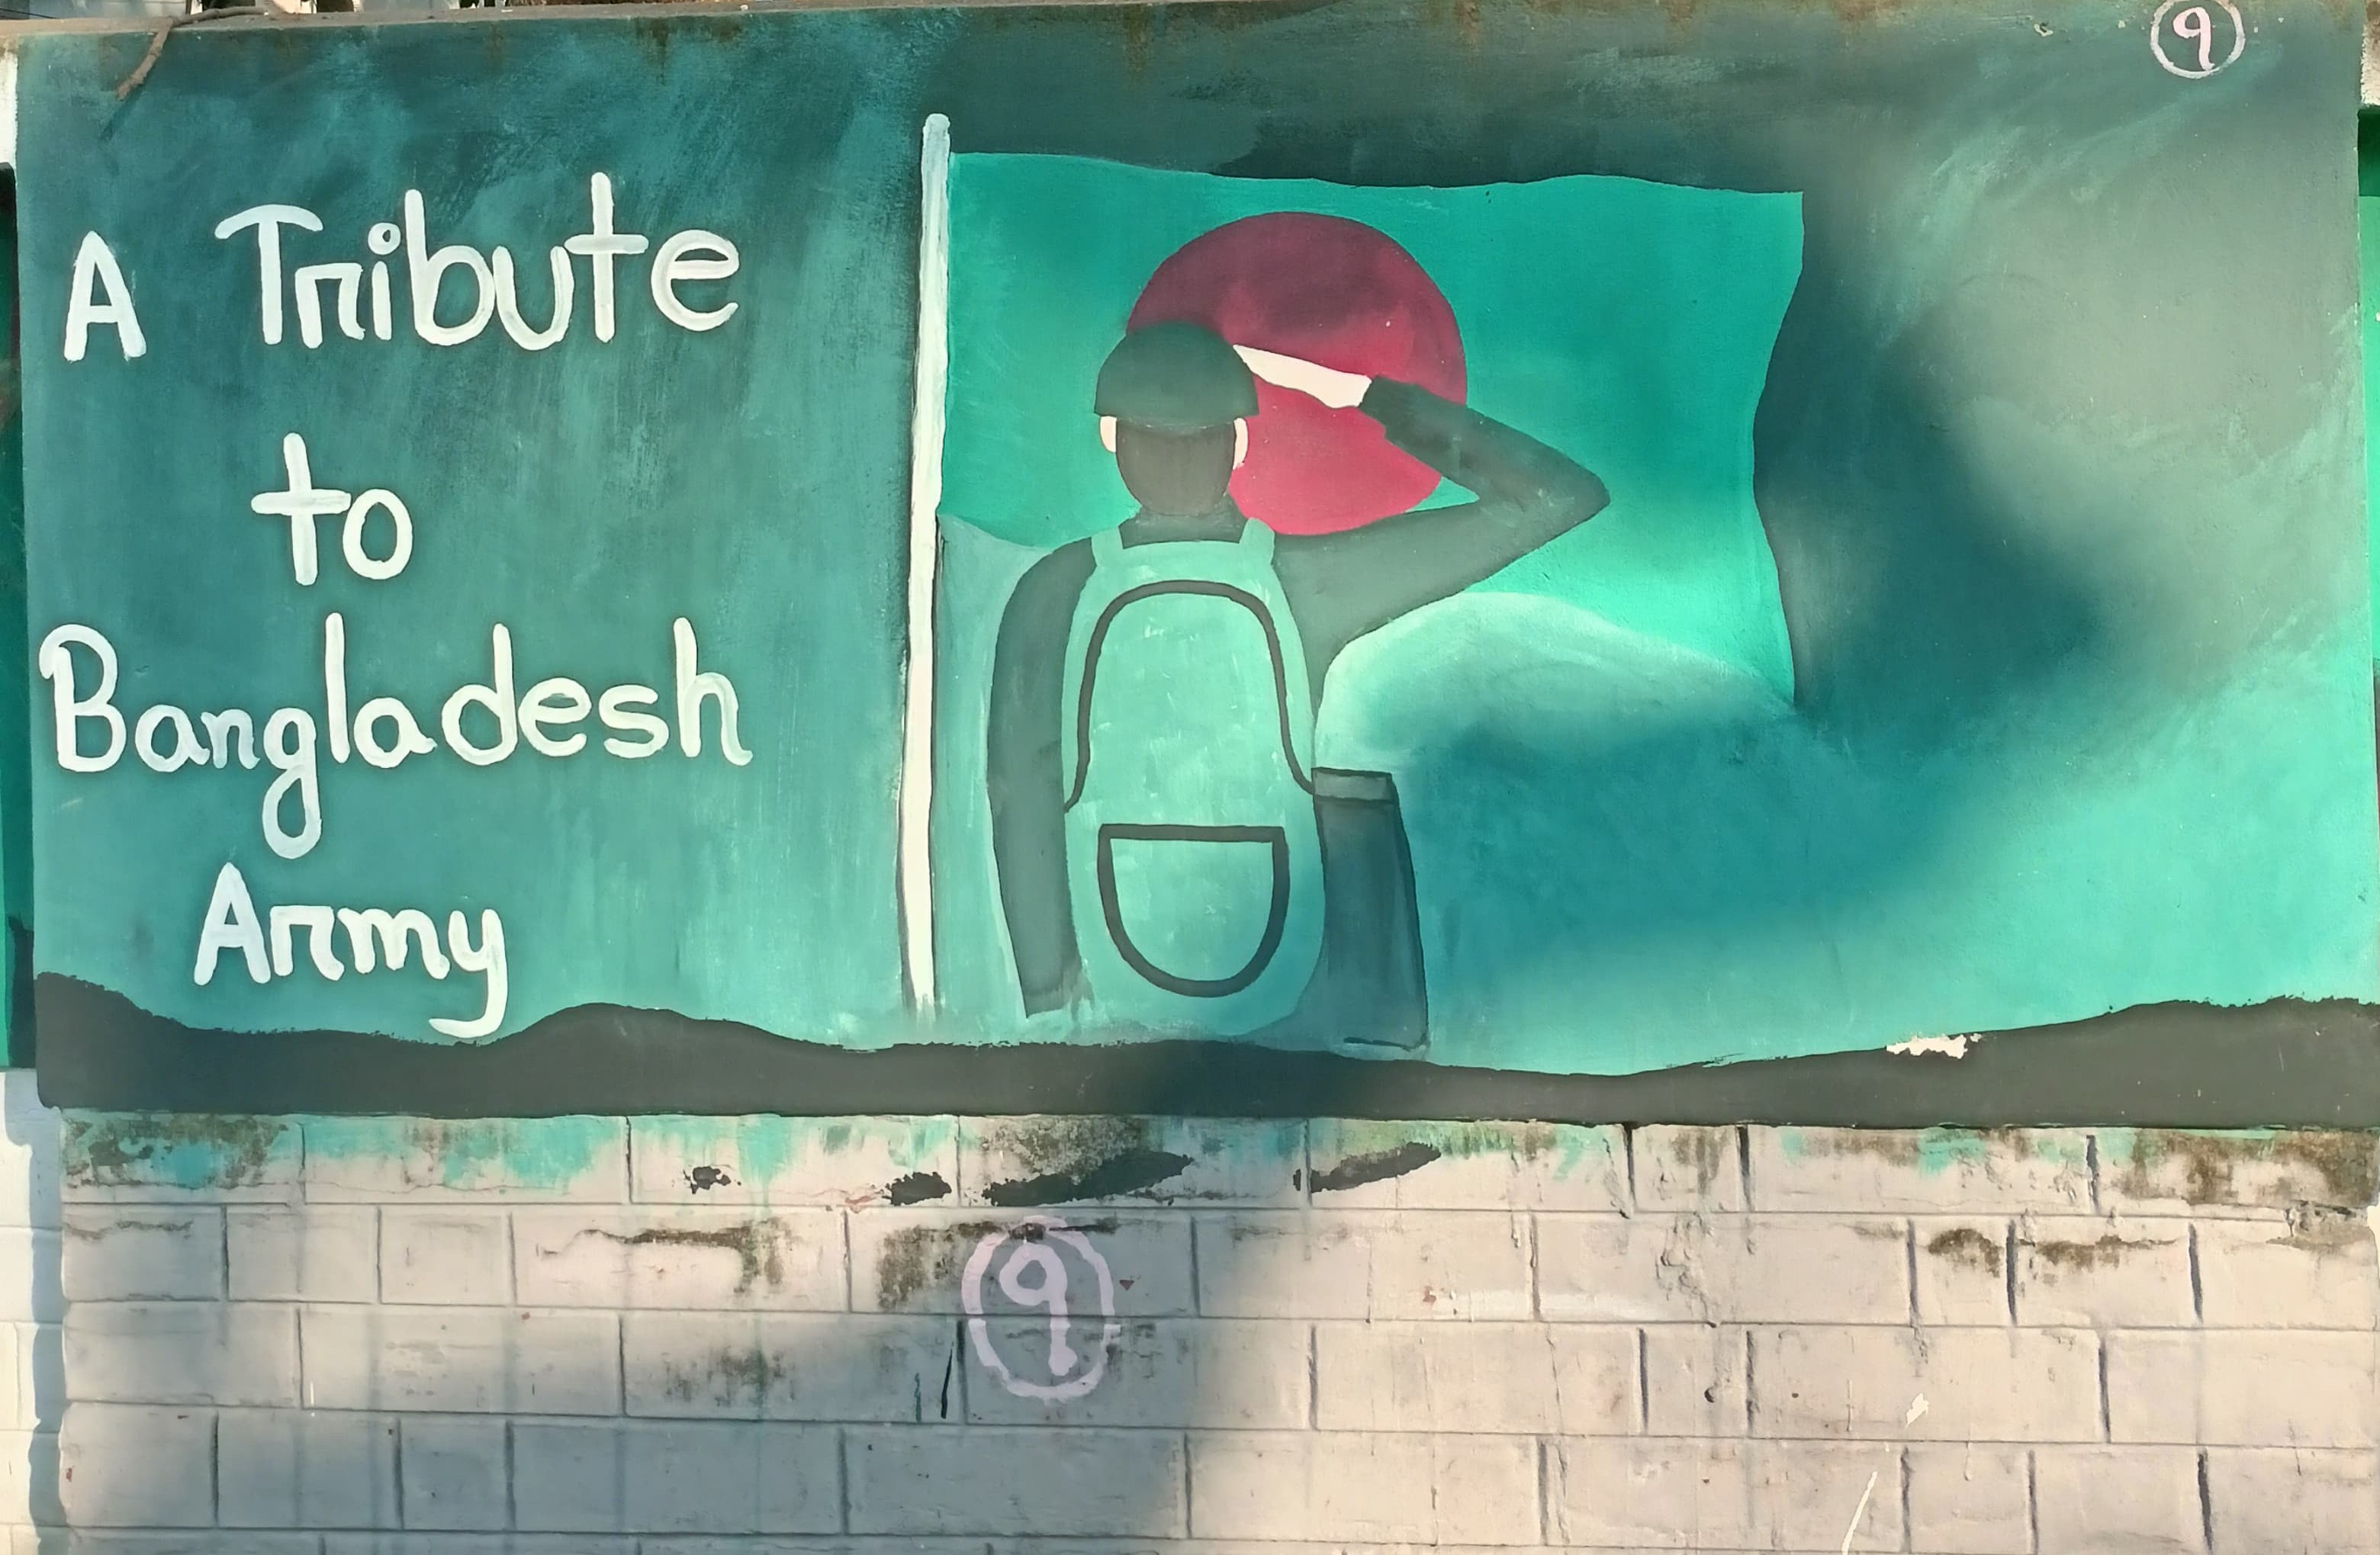 ৭
A Tribute
to
Bangladesh
Army
৭